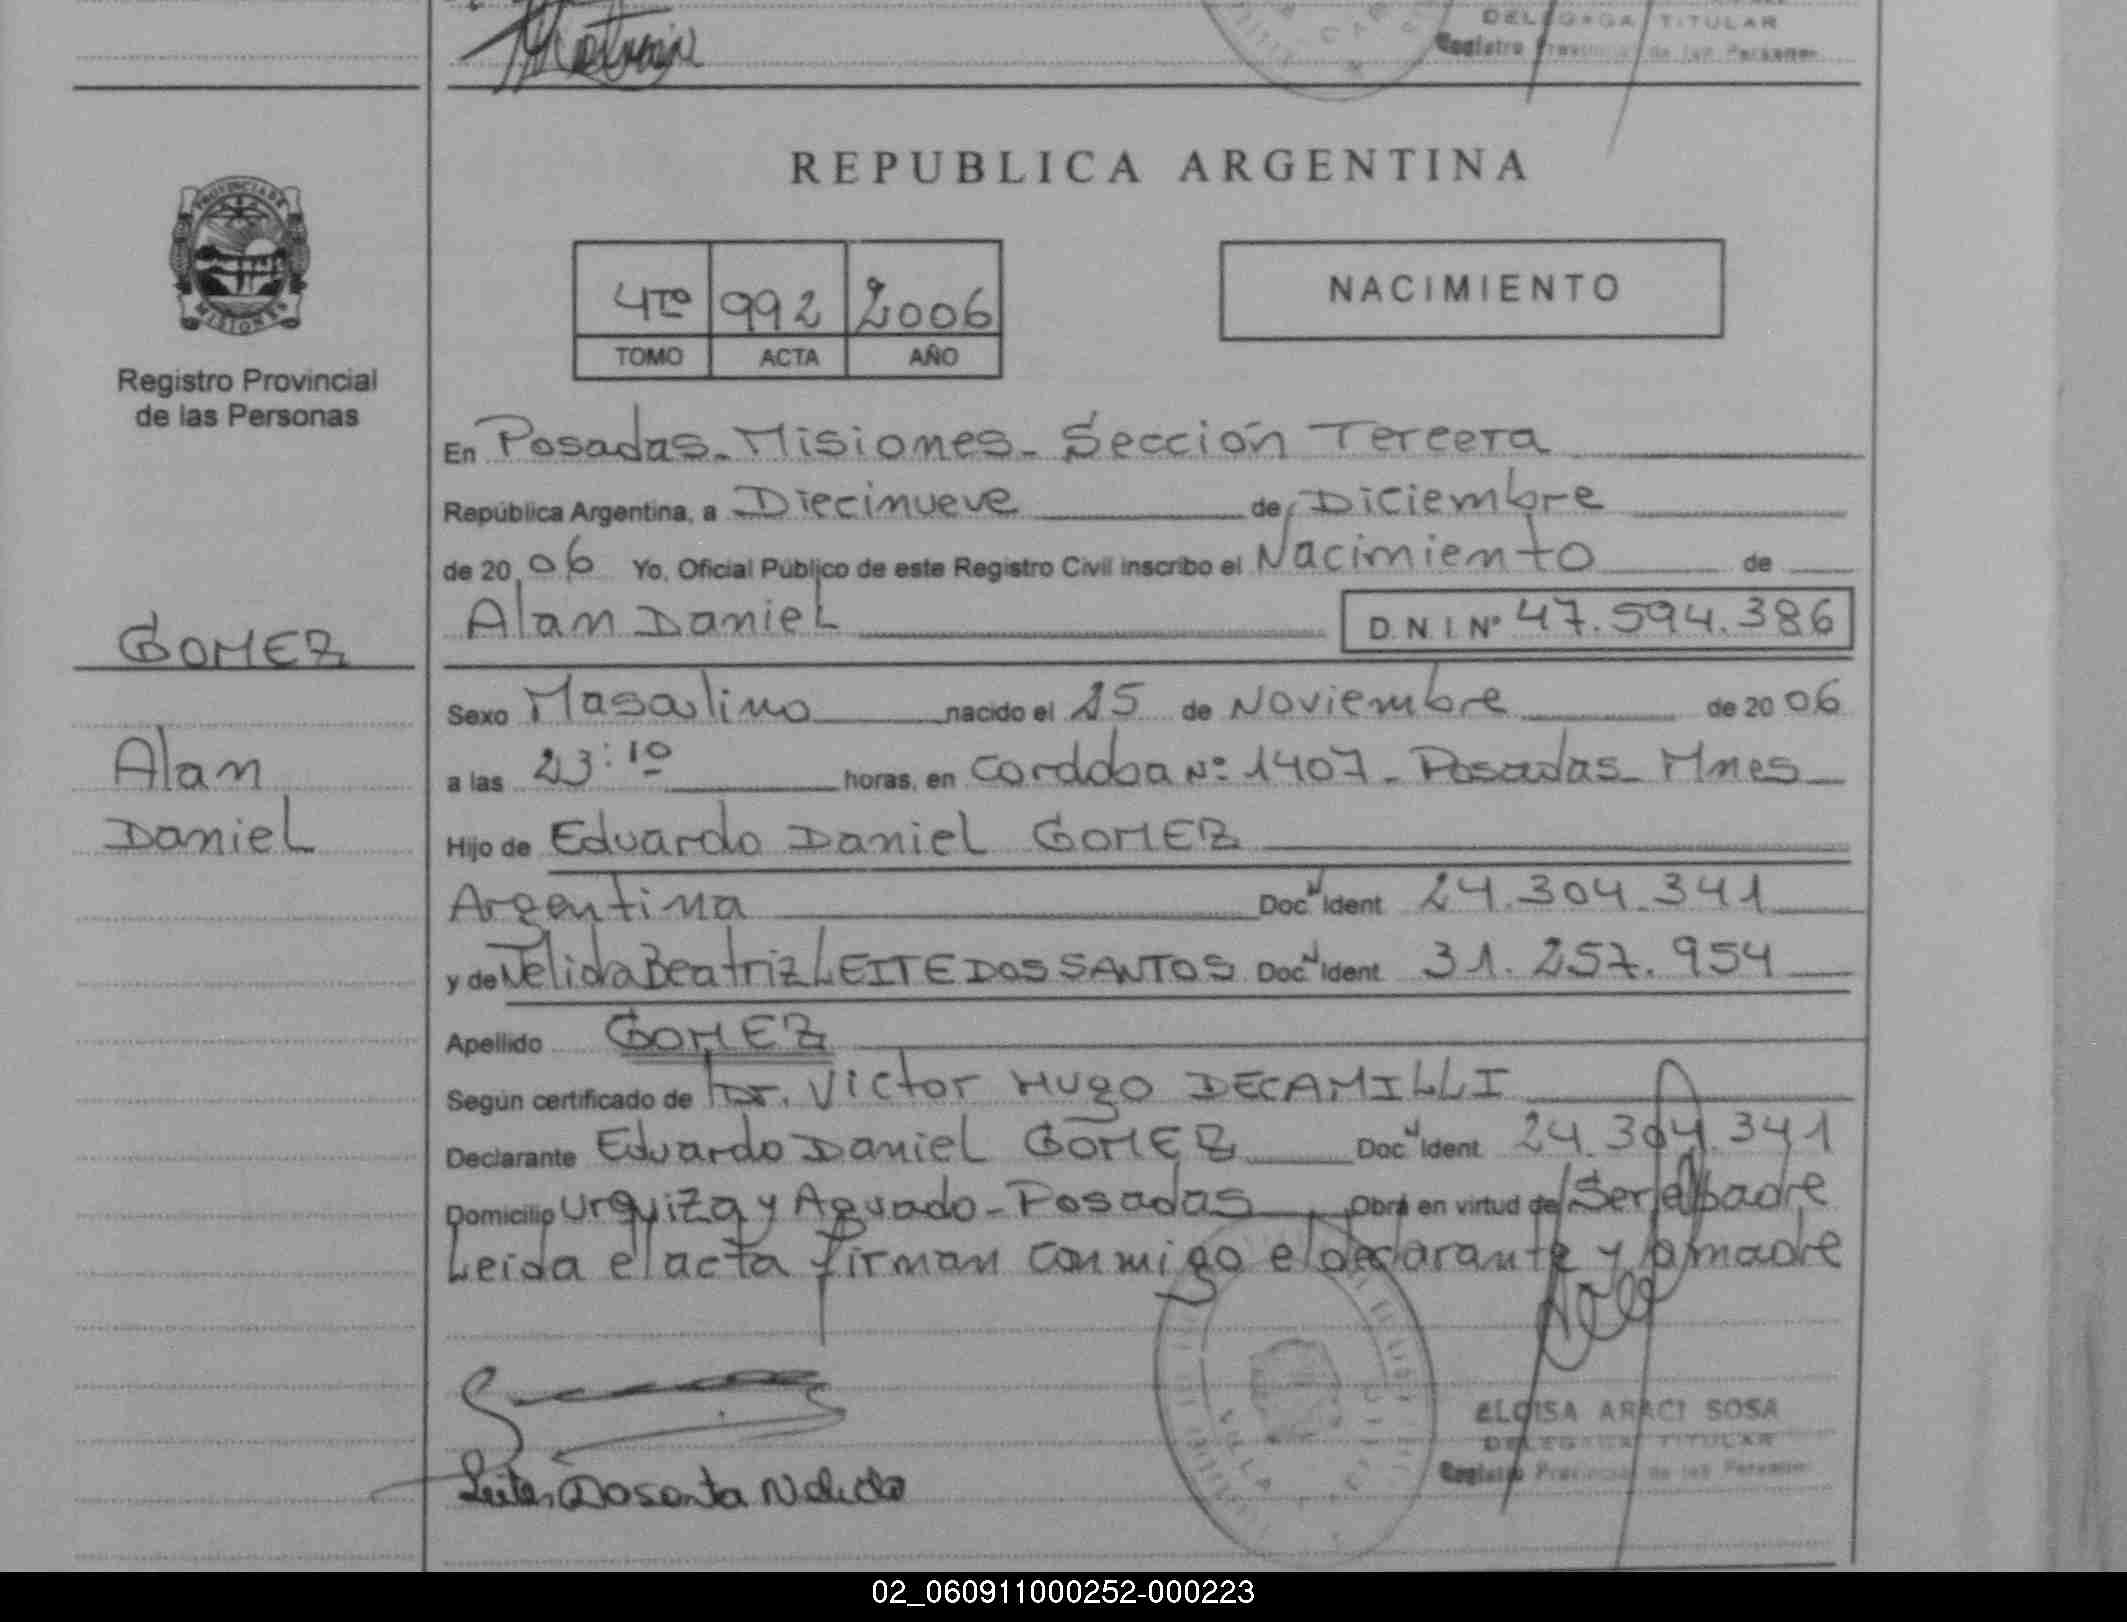 DELEGADA TITULAR
Registro Provincial de las Personas
REPUBLICA ARGENTINA
PROVINCIA DE
MISIONES
4TO 992 2006
TOMO ACTA AÑO
NACIMIENTO
Registro Provincial
de las Personas
En Posadas - Misiones - Sección Tercera
República Argentina, a Diecinueve de Diciembre
de 2006 Yo, Oficial Público de este Registro Civil inscribo el Nacimiento de
Alan Daniel D.N.I Nº 47.594.386
GOMEZ
Alan
Daniel
Sexo Masculino nacido el 25 de Noviembre de 2006
a las 23:10 horas, en Cordoba Nº 1407 - Posadas - Mnes
Hijo de Eduardo Daniel GOMEZ
Argentina Doc. Ident 24.304.341
y de Nelida Beatriz LEITE DOS SANTOS Doc. Ident 31.257.954
Apellido GOMEZ
Según certificado de Dr. Victor Hugo DECAMILLI
Declarante Eduardo Daniel GOMEZ Doc. Ident 24.304.341
Domicilio Urquiza y Aguado - Posadas Obra en virtud de Ser el padre
Leida el acta firman conmigo el declarante y la madre
ELOISA ARACI SOSA
DELEGADA TITULAR
Registro Provincial de las Personas
02_060911000252-000223